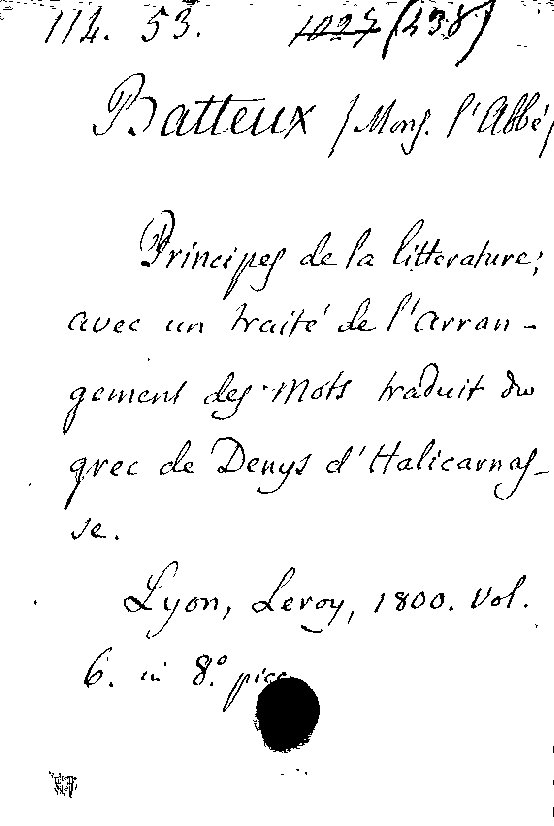 114. 53. 1027 (238)
Batteux (Mons. l'Abbé)
Principes de la litterature;
avec un traité de l'arran-
gement des mots traduit du
grec de Denys d'Halicarnas-
se.
Lyon, Leroy, 1800. Vol.
6. in 8.° picc